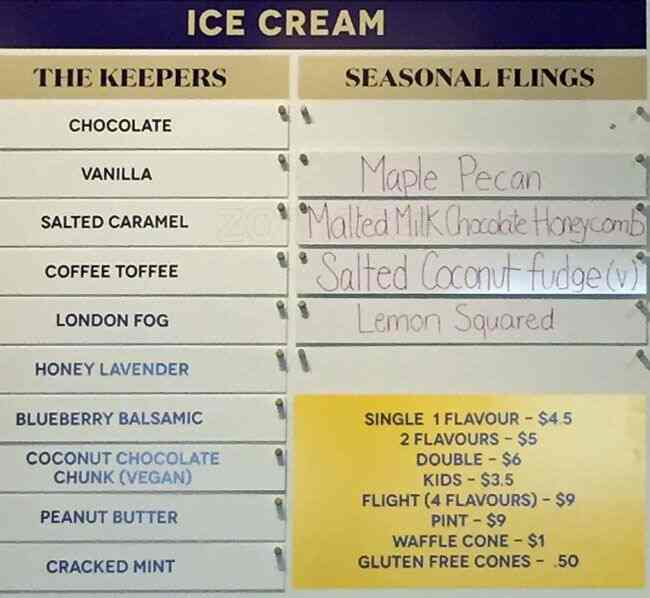 ICE CREAM
THE KEEPERS
CHOCOLATE
VANILLA
SALTED CARAMEL
COFFEE TOFFEE
LONDON FOG
HONEY LAVENDER
BLUEBERRY BALSAMIC
COCONUT CHOCOLATE
CHUNK (VEGAN)
PEANUT BUTTER
CRACKED MINT
SEASONAL FLINGS
Maple Pecan
Malted Milk Chocolate Honeycomb
Salted Coconut fudge (v)
Lemon Squared
SINGLE 1 FLAVOUR - $4.5
2 FLAVOURS - $5
DOUBLE - $6
KIDS - $3.5
FLIGHT (4 FLAVOURS) - $9
PINT - $9
WAFFLE CONE - $1
GLUTEN FREE CONES - .50